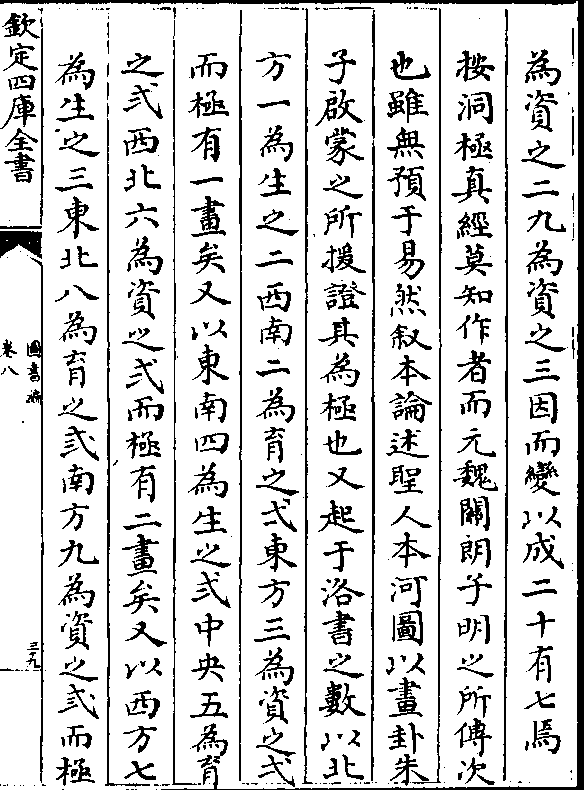 為資之二九為資之三因而變以成二十有七焉
按洞極真經莫知作者而元魏關朗子明之所傳次
也雖無預于易然叙本論述聖人本河圖以畫卦朱
子啟蒙之所援證其為極也又起于洛書之數以北
方一為生之二西南二為育之弌東方三為資之弌
而極有一畫矣又以東南四為生之弍中央五為育
之弍西北六為資之弍而極有二畫矣又以西方七
為生之三東北八為育之弎南方九為資之弎而極
欽定四庫全書
圖書編
卷八
三九